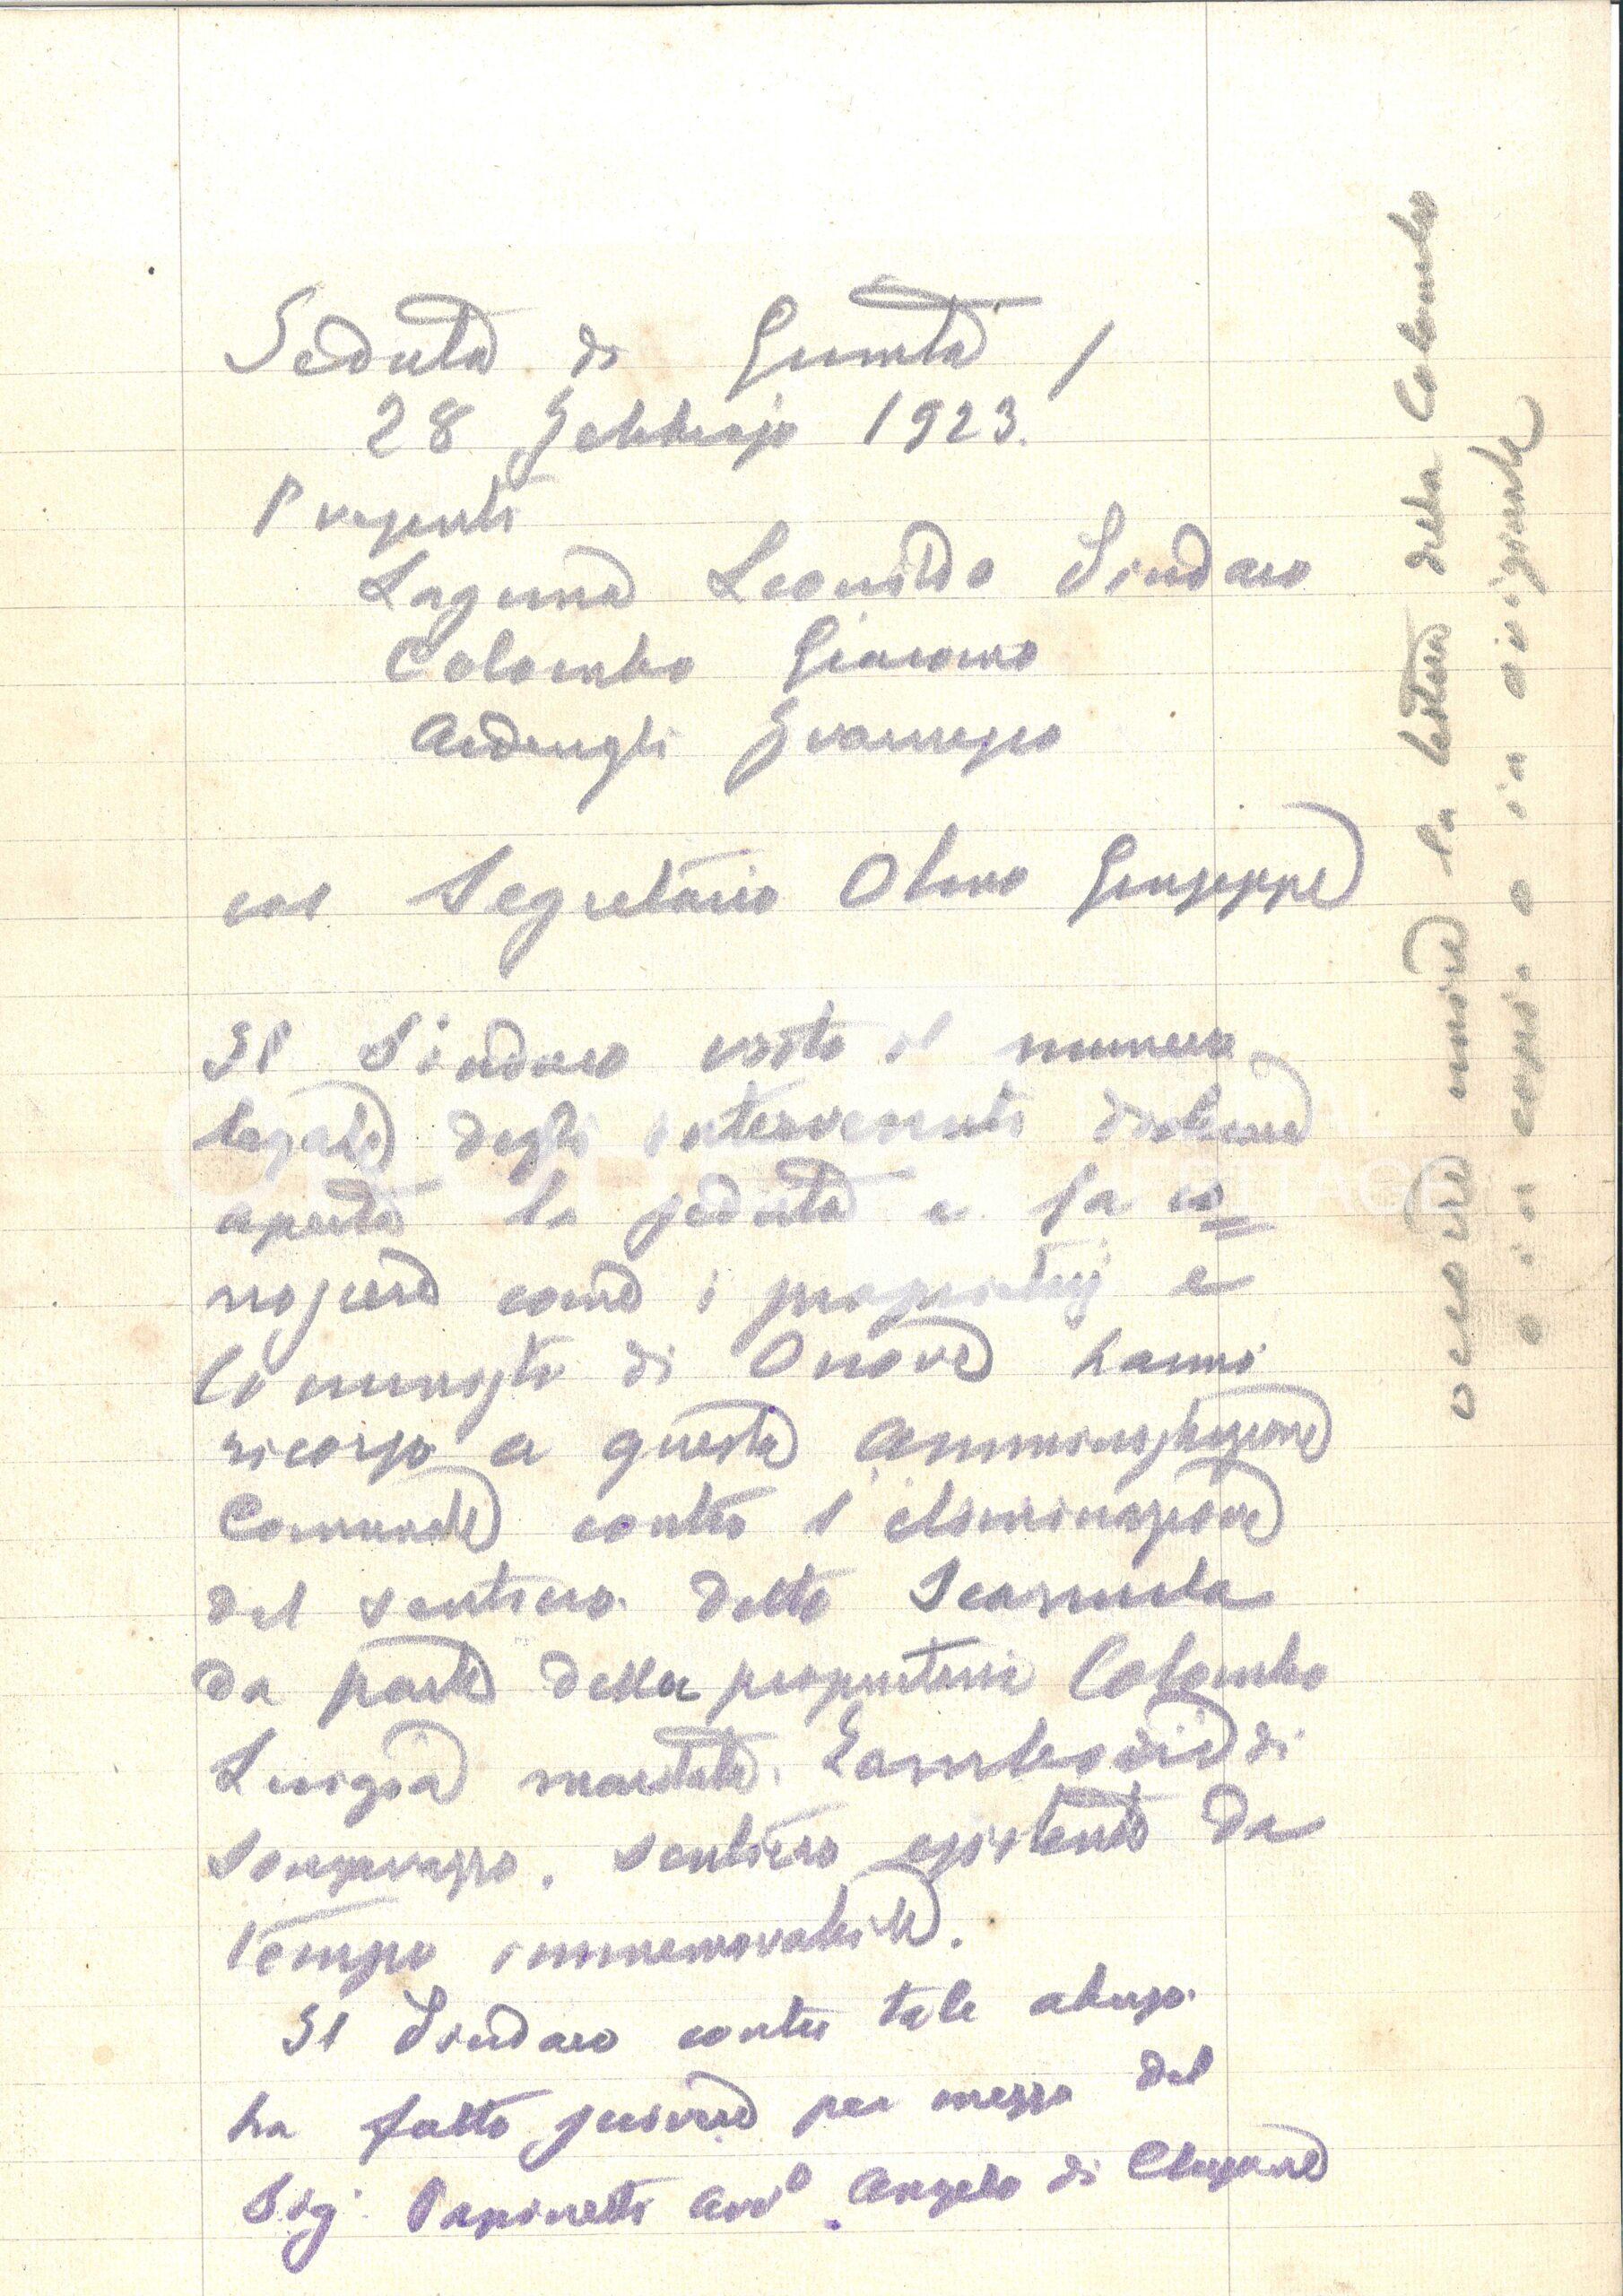 Seduta di Giunta
28 Febbraio 1923.
Presenti
Laguna Leonildo Sindaco
Colombo Giacomo
Ardenghi Francesco
col Segretario Olmo Giuseppe
Il Sindaco visto il numero
legale degli intervenuti dichiara
aperta la seduta e fa co=
noscere come i proprietarj e
Comunisti di Onore hanno
ricorso a questa Amministrazione
Comunale contro l'eliminazione
del sentiero detto Scarnela
da parte della proprietaria Colombo
Luigia maritata Zamboni di
sentiero esistente da
tempo immemorabile.
Il Sindaco contro tale abuso
ha fatto scrivere per mezzo del
Sig. Avv° Angelo di Clusone
occorre unire la lettera della Colombo
o in copia o in originale